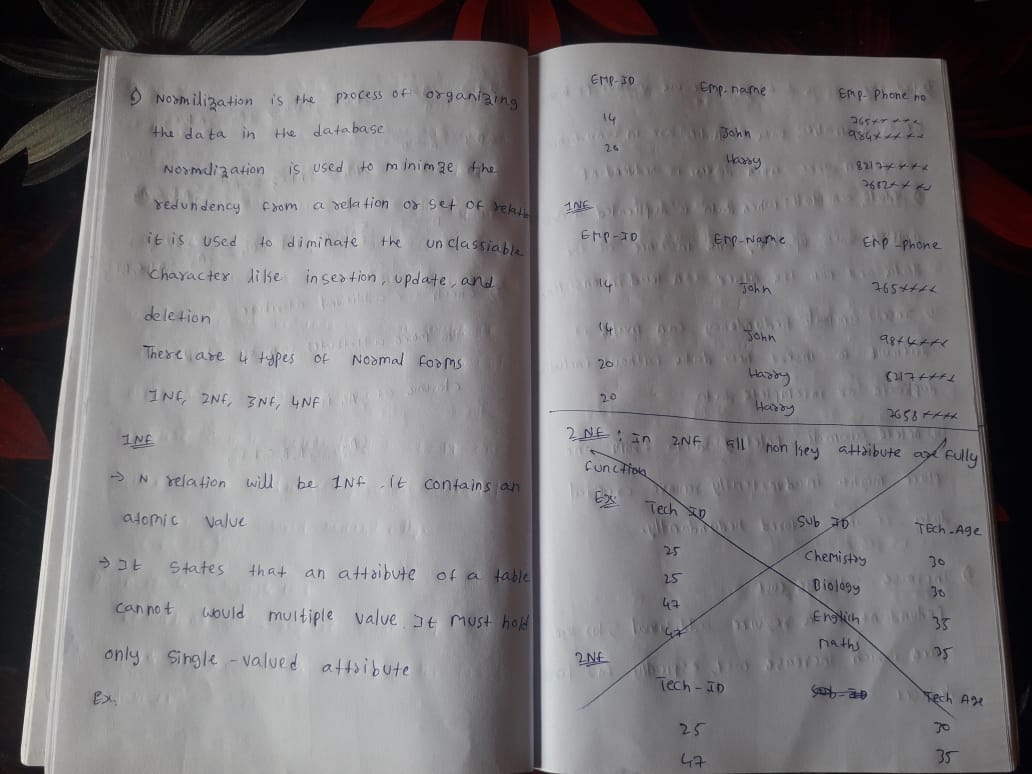 5) Normilization is the process of organizing
the data in the database
Normalization is used to minimze the
redundency from a relation or set of
it is used to diminate the unclassiable
Character like insertion, update, and
deletion
There are 4 types of Normal forms
1NF, 2NF, 3NF, 4NF
1NF
→ N relation will be 1NF. It contains an
atomic value
→ It states that an attribute of a table
cannot would multiple value. It must hold
only single-valued attribute
Ex,
EMP-ID Emp.name Emp- Phone no
765*****
14 John 984*****
20 Harry 8217****
1NF
EMP-ID Emp-Name Emp-phone
14 John 765****
14 John
20 Harry
20 Harry 7658****
2NF : In 2NF, all non key attribute are fully
function
Ex: Tech ID Sub ID TEch-Age
25 Chemistry 30
25 Biology 30
47 English 35
47 maths 35
2NF
Tech-ID Sub-ID Tech Age
25 30
47 35